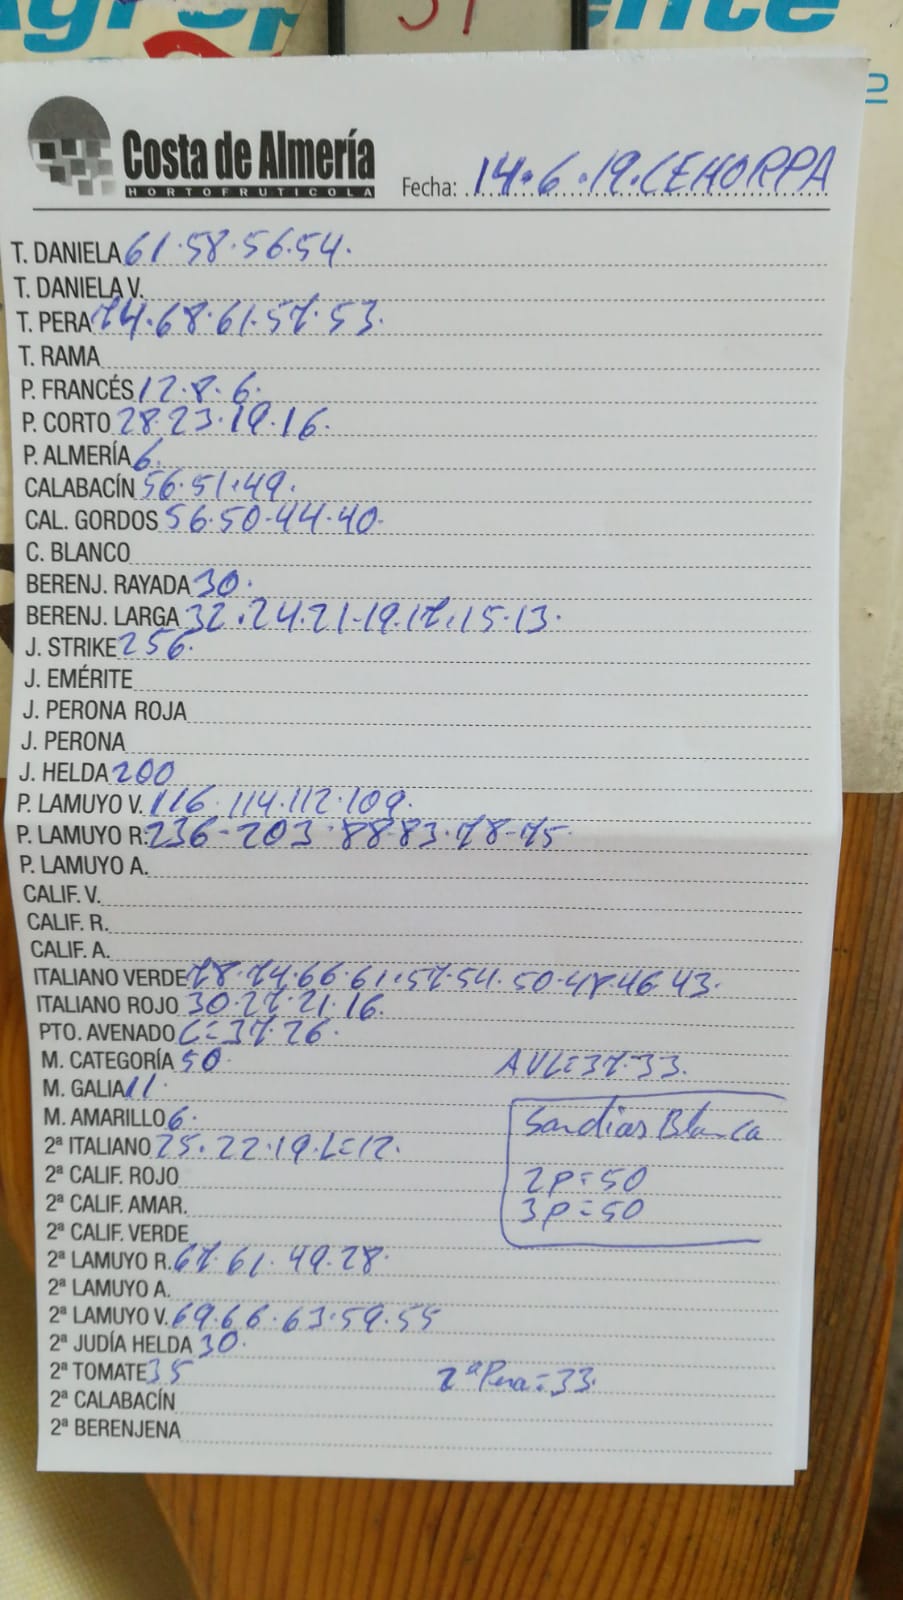 Costa de Almería
HORTOFRUTICOLA
Fecha: 14.6.19.CEHORPA
T. DANIELA 61.58.56.54.
T. DANIELA V.
T. PERA 74.68.61.57.53.
T. RAMA
P. FRANCÉS 12.8.6.
P. CORTO 28.23.19.16.
P. ALMERÍA 6.
CALABACÍN 56.51.49.
CAL. GORDOS 56.50.44.40.
C. BLANCO
BERENJ. RAYADA 30.
BERENJ. LARGA 32.24.21-19.17.15.13.
J. STRIKE 256.
J. EMÉRITE
J. PERONA ROJA
J. PERONA
J. HELDA 200
P. LAMUYO V. 116.114.112.109.
P. LAMUYO R. 236-203.88-83.78-75
P. LAMUYO A.
CALIF. V.
CALIF. R.
CALIF. A.
ITALIANO VERDE 78.74.66.61.57.54.50.48.46.43.
ITALIANO ROJO 30.27.21.16.
PTO. AVENADO C=37.26.
M. CATEGORÍA 50. AVL=37.33.
M. GALIA 11.
M. AMARILLO 6. Sandias Blanca
2ª ITALIANO 25.22.19.L=12.
2ª CALIF. ROJO 2P=50
2ª CALIF. AMAR. 3P=50
2ª CALIF. VERDE
2ª LAMUYO R. 67.61.49.28.
2ª LAMUYO A.
2ª LAMUYO V. 69.66.63.59.55
2ª JUDÍA HELDA 30.
2ª TOMATE 35 2ª Pera=33.
2ª CALABACÍN
2ª BERENJENA